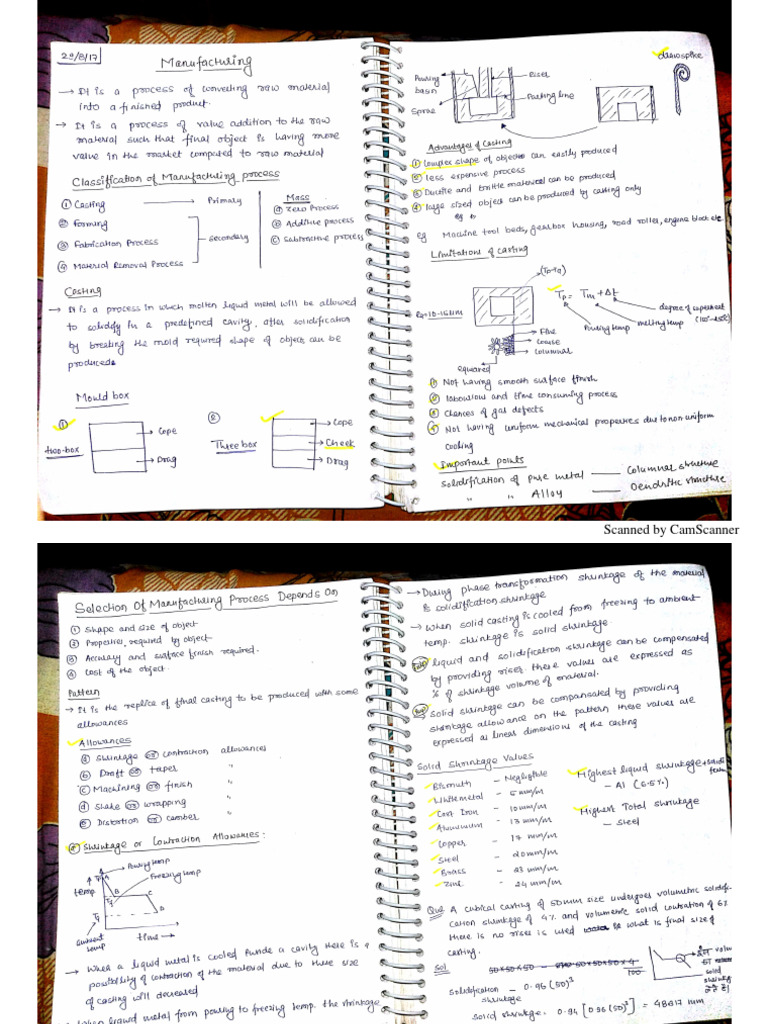 22/8/17
Manufacturing
→ It is a process of converting raw material
into a finished product.
→ It is a process of value addition to the raw
material such that final object is having more
value in the market computed to raw material
Classification of Manufacturing process
① Casting → Primary
② Forming
③ Fabrication Process
④ Material Removal Process
secondary
Mass
ⓐ zero Process
ⓑ Additive process
ⓒ Subtractive process
Casting
→ It is a process in which molten liquid metal will be allowed
to solidify in a predefined cavity, after solidification
by breaking the mold required shape of object can be
produced.
Mould box
① two-box
Cope
Drag
② Three box
Cope
Cheek
Drag
Pouring basin
Sprue
Riser
Parting line
drawspike
Advantages of Casting
① Complex shape of objects can easily produced
② less expensive process
③ Ductile and brittle material can be produced
④ large sized object can be produced by casting only
eg Machine tool beds, gearbox housing, road roller, engine block etc.
Limitations of casting
Tp = Tm + Δt
degree of superheat
melting temp
Pouring temp
Fine
Coarse
Columnar
equared
① Not having smooth surface finish
② laboulow and time consuming process
③ Chances of gas defects
④ Not having uniform mechanical properties due to non-uniform
cooling
Important points
Solidification of pure metal — Columnar structure
" " Alloy — Dendritic structure
Scanned by CamScanner
Selection Of Manufacturing Process Depends On
① Shape and size of object
② Properties required by object
③ Accuracy and surface finish required.
④ Cost of the object.
Pattern
→ It is the replica of final casting to be produced with some
allowances
Allowances
ⓐ Shrinkage or contraction allowances
ⓑ Draft or taper "
ⓒ Machining or finish "
ⓓ Shake or wrapping "
ⓔ Distortion or camber "
ⓐ Shrinkage or Contraction Allowances:
Pouring temp
Freezing temp
temp
ambient temp
time →
→ When a liquid metal is cooled inside a cavity there is a
possibility of contraction of the material due to there size
of casting will decreased
When liquid metal from pouring to freezing temp. the shrinkage
→ During phase transformation shrinkage of the material
is solidification shrinkage
→ When solid casting is cooled from freezing to ambient
temp. shrinkage is solid shrinkage.
liquid and solidification shrinkage can be compensated
by providing riser. these values are expressed as
% of shrinkage volume of material.
→ Solid shrinkage can be compansated by providing
shrinkage allowance on the pattern these values are
expressed as linear dimensions of the casting
Solid Shrinkage Values
Bismuth – Negligible
Whitemetal – 5 mm/m
Cast Iron – 10mm/m
Aluminum – 13 mm/m
Copper – 17 mm/m
Steel – 20mm/m
Brass – 23 mm/m
Zinc – 24 mm/m
Highest liquid shrinkage
– Al (6.5%)
Highest Total shrinkage
– Steel
Que A cubical casting of 50mm size undergoes volumetric solidifi-
cation shrinkage of 4% and volumetric solid contration of 6%
there is no rise is used what is final size of
casting.
Sol
solidification – 0.96 (50)³
shrinkage
solid shrinkage. 0.94 [0.96 (50)³] =